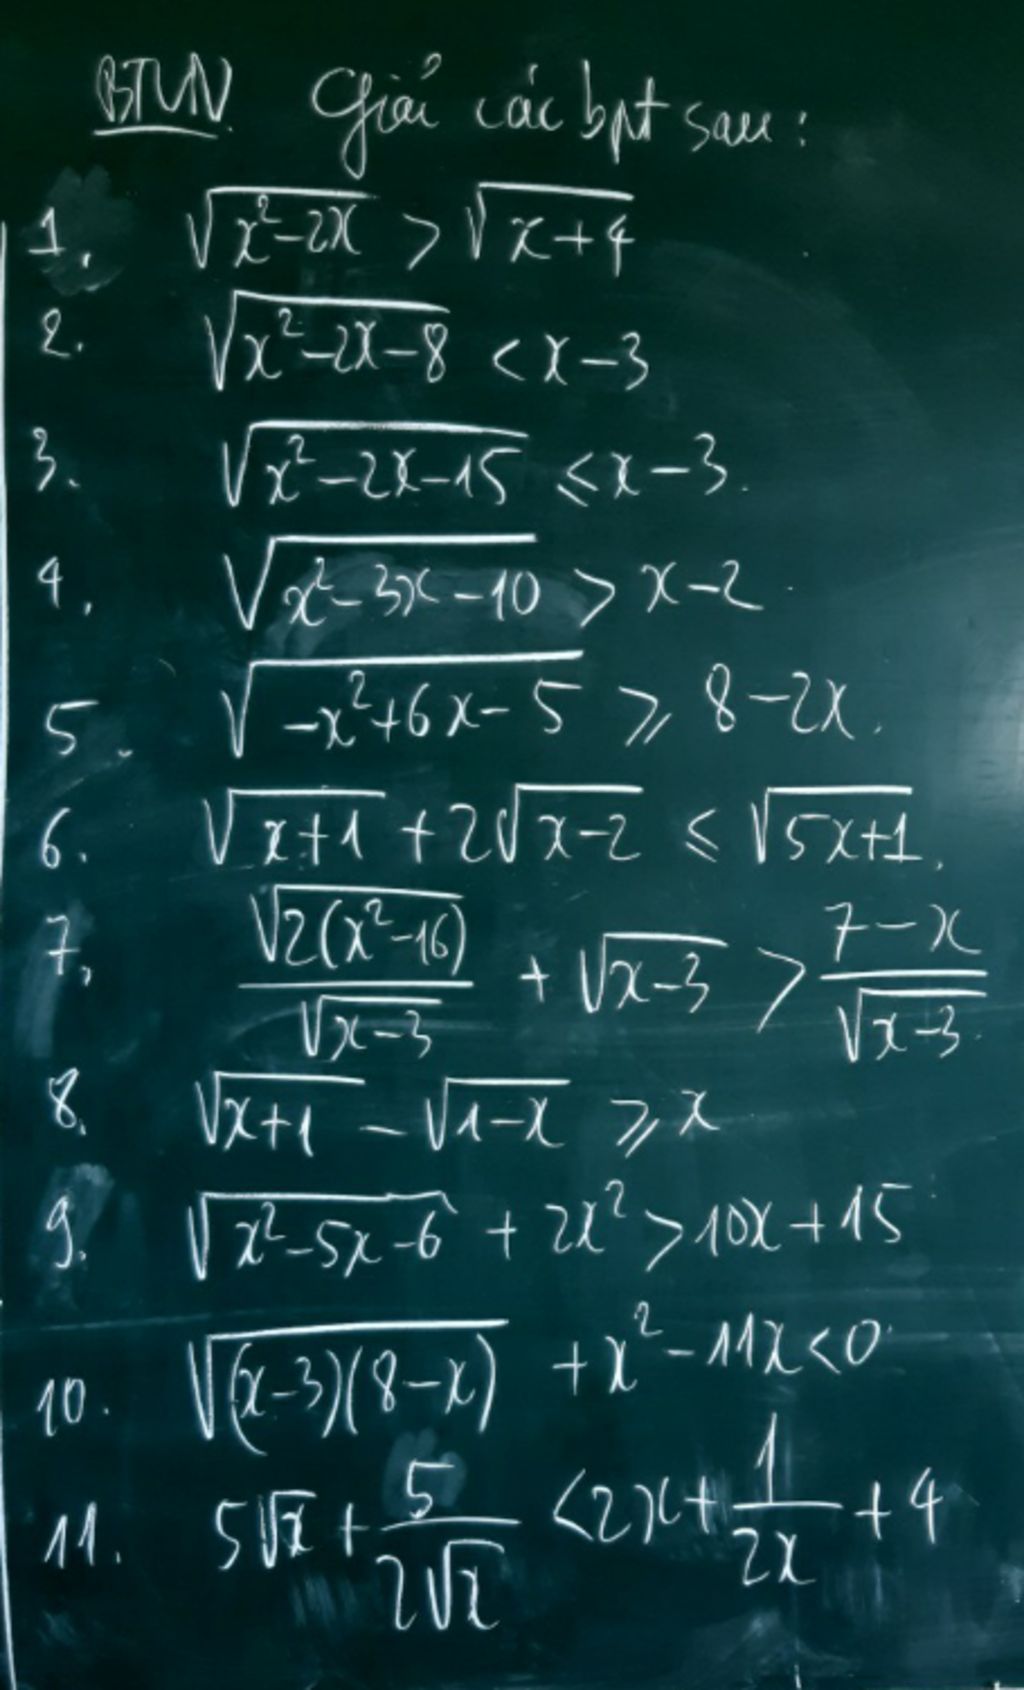 BTVN. Giải các bpt sau:
1. √(x²-2x) > √(x+4)
2. √(x²-2x-8) < x-3
3. √(x²-2x-15) ≤ x-3.
4. √(x²-3x-10) > x-2.
5. √(-x²+6x-5) ≥ 8-2x.
6. √(x+1) + 2√(x-2) ≤ √(5x+1).
7. √(2(x²-16))/√(x-3) + √(x-3) > (7-x)/√(x-3).
8. √(x+1) - √(1-x) ≥ x
9. √(x²-5x-6) + 2x² > 10x+15
10. √((x-3)(8-x)) + x² - 11x < 0
11. 5√x + 5/(2√x) < 2x + 1/(2x) + 4